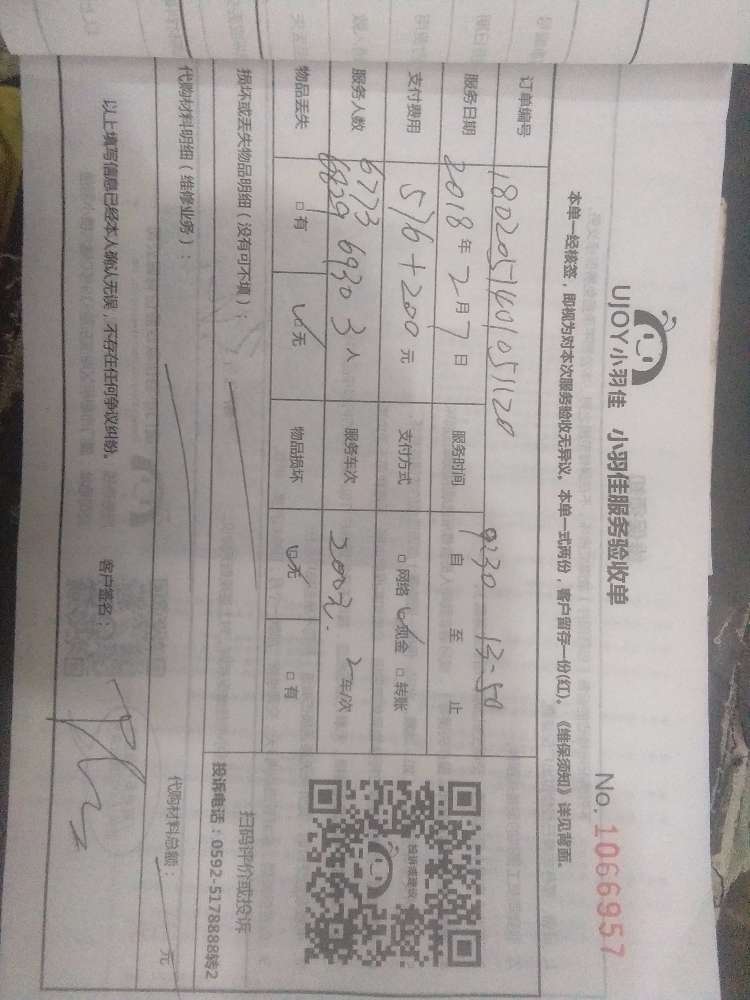 UJOY小羽佳 小羽佳服务验收单 No. 1066957
本单一经核签，即视为对本次服务验收无异议。本单一式两份，客户留存一份(红)。《维保须知》详见背面。
订单编号 1802051401051120
服务日期 2018年2月7日 服务时间 自9:30至13-50止
支付费用 576+200元 支付方式 □网络 ☑现金 □转账
服务人数 6773 6930 3人 服务车次 200元. 2车/次
8829
物品丢失 □有 ☑无 物品损坏 ☑无 □有
损坏或丢失物品明细（没有可不填）：
代购材料明细（维修业务）：
代购材料总额： 元
以上填写信息已经本人确认无误，不存在任何争议纠纷。 客户签名：
投诉或建议
扫码评价或投诉
投诉电话：0592-5178888转2